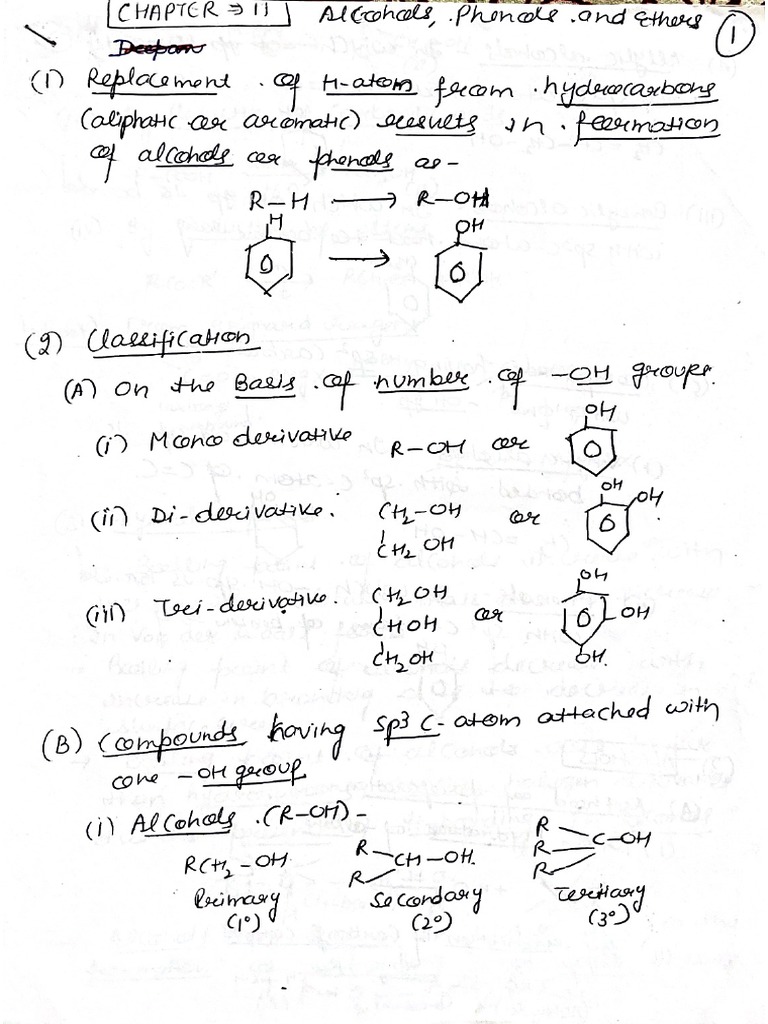 CHAPTER ⇒ 11 Alcohols, Phenols and Ethers
1
Deepan
(1) Replacement of H-atom from hydrocarbons
(aliphatic or aromatic) results in formation
of alcohols or phenols as-
R-H ⟶ R-OH
H ⟶ OH
(2) Classification
(A) On the Basis of number of -OH groups.
(i) Mono derivative R-OH or OH
(ii) Di-derivative. CH2-OH or OH OH
CH2 OH
(iii) Tri-derivative. CH2OH or OH
CHOH OH
CH2OH OH.
(B) Compounds having sp3 C-atom attached with
one -OH group
(i) Alcohols (R-OH)-
RCH2-OH R R CH-OH. R R R C-OH
Primary Secondary Tertiary
(1°) (2°) (3°)